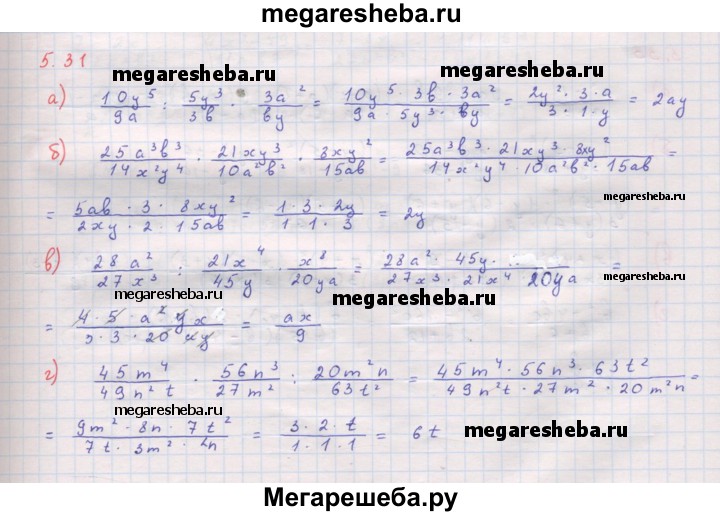 megaresheba.ru
5.31
megaresheba.ru megaresheba.ru
а) 10y⁵/9a : 5y³/3в · 3a²/вy = 10y⁵ · 3в · 3a²/9a · 5y³ · вy = 2y² · 3 · a/3 · 1 · y = 2ay
б) 25a³в³/14x²y⁴ · 21xy³/10a²в² · 8xy²/15aв = 25a³в³ · 21xy³ · 8xy²/14x²y⁴ · 10a²в² · 15aв =
megaresheba.ru
= 5aв · 3 · 8xy²/2xy · 2 · 15aв = 1 · 3 · 2y/1 · 1 · 3 = 2y
в) 28a²/27x³ : 21x⁴/45y · x⁸/20ya = 28a² · 45y ·/27x³ · 21x⁴ 20ya =
megaresheba.ru megaresheba.ru megaresheba.ru
= 4 · 5 · a² y x/· 3 · 20 xy = ax/9
г) 45m⁴/49n²t · 56n³/27m² : 20m²n/63t² = 45m⁴ · 56n³ · 63t²/49n²t · 27m² · 20m²n =
megaresheba.ru
= 9m² · 8n · 7t²/7t · 3m² · 4n = 3 · 2 · t/1 · 1 · 1 = 6t
megaresheba.ru
megaresheba.ru
Мегарешеба.ру